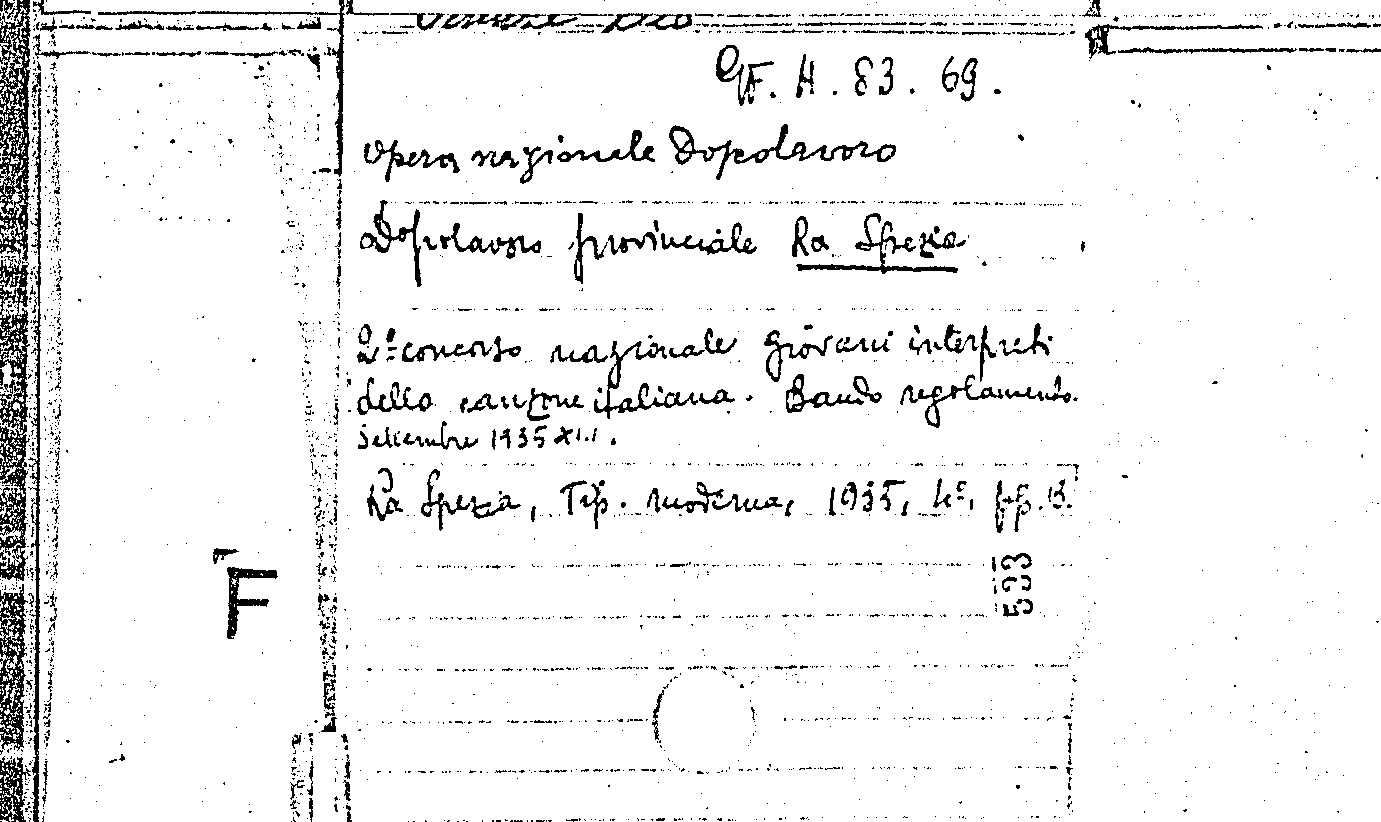 GF. H. 83. 69.
Opera nazionale Dopolavoro
Dopolavoro provinciale La Spezia
2º concorso nazionale giovani interpreti
della canzone italiana. Bando regolamento.
Settembre 1935 XIII.
La Spezia, Tip. moderna, 1935, 4º, pp. 13.
533
F